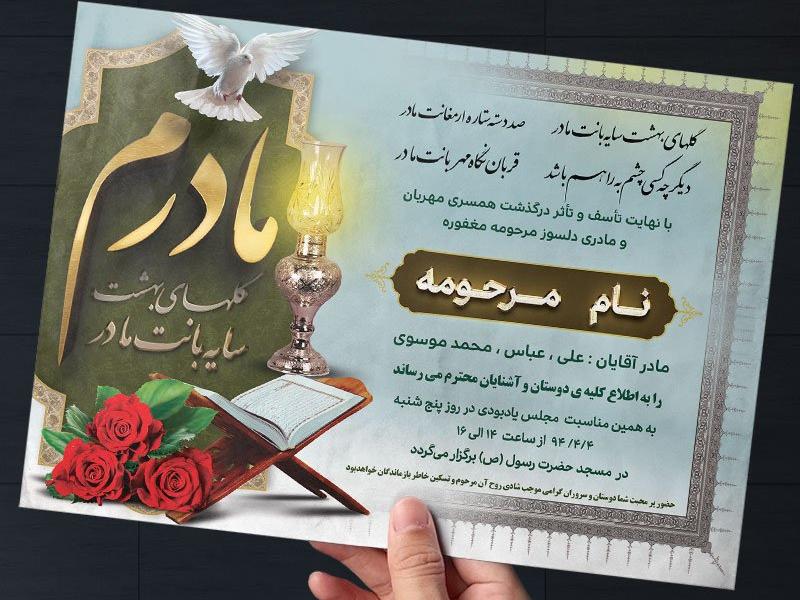 گلهای بهشت سایه بانت مادر
صد دسته ستاره ارمغانت مادر
دیگر چه کسی چشم به راهم باشد
قربان نگاه مهربانت مادر
با نهایت تأسف و تأثر درگذشت همسری مهربان
و مادری دلسوز مرحومه مغفوره
نام مرحومه
مادر آقایان : علی ، عباس ، محمد موسوی
را به اطلاع کلیه ی دوستان و آشنایان محترم می رساند
به همین مناسبت مجلس یادبودی در روز پنج شنبه
۹۴/۴/۴ از ساعت ۱۴ الی ۱۶
در مسجد حضرت رسول (ص) برگزار می‌گردد
حضور پر محبت شما دوستان و سروران گرامی موجب شادی روح آن مرحوم و تسکین خاطر بازماندگان خواهدبود
مادرم
گلهای بهشت
سایه بانت مادر